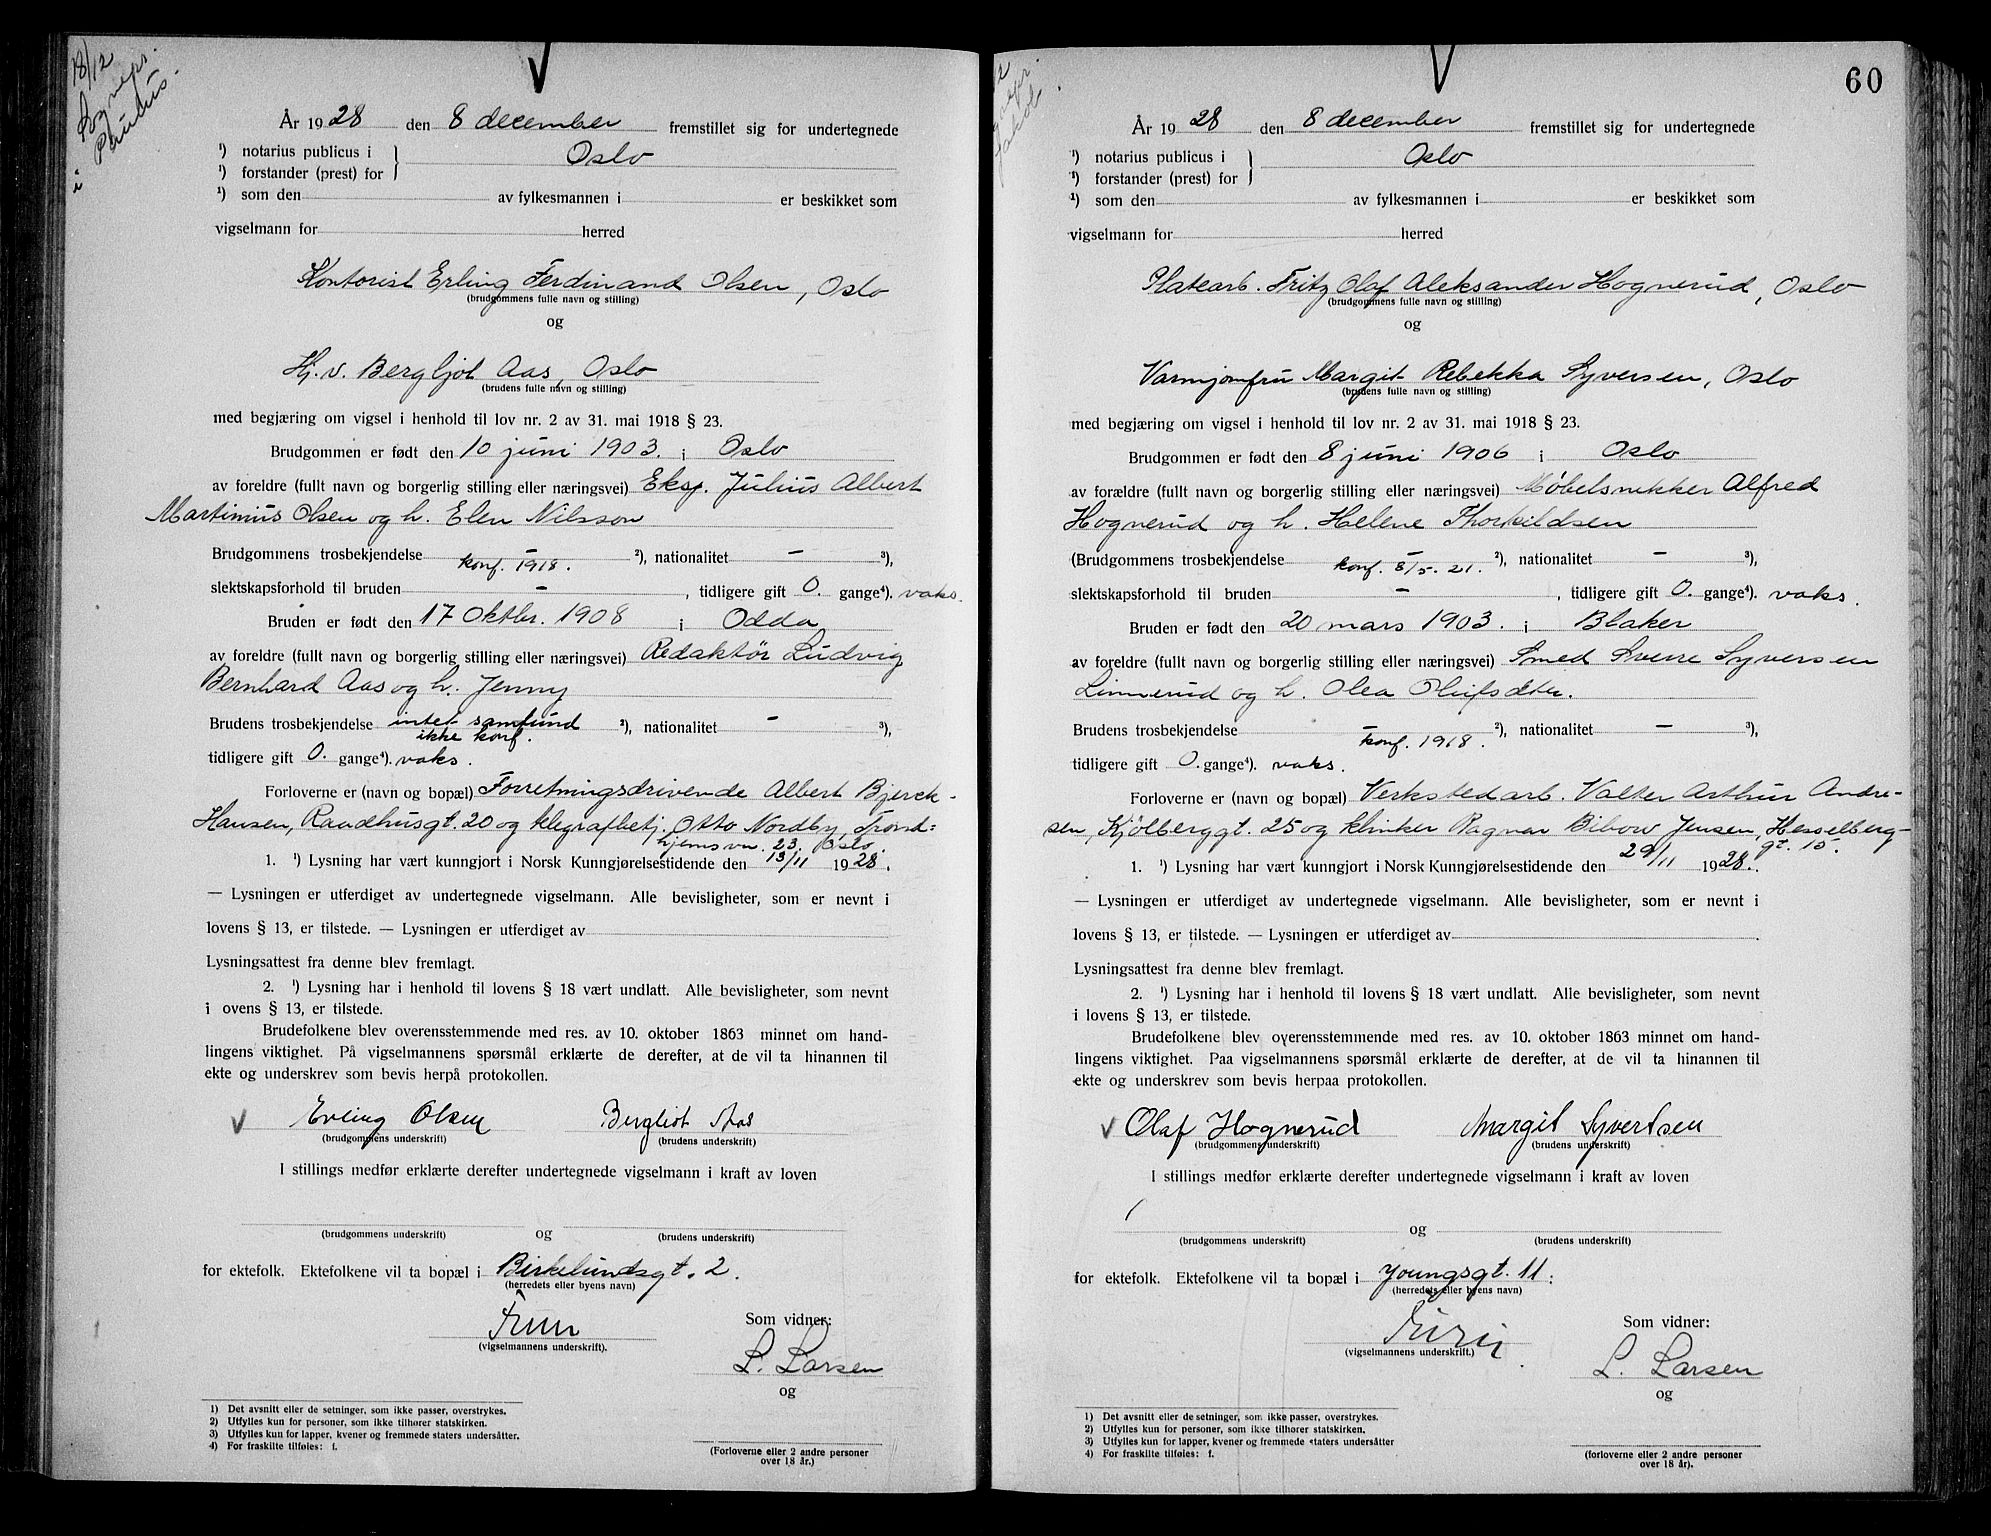 18/12
Sognepr.
i Paulus.
År 1928 den 8 december fremstillet sig for undertegnede
¹) notarius publicus i } Oslo
¹) forstander (prest) for
¹) som den av fylkesmannen i er beskikket som
vigselmann for herred
Kontorist Erling Ferdinand Olsen, Oslo
(brudgommens fulle navn og stilling)
og
Hj. v. Bergljot Aas, Oslo
(brudens fulle navn og stilling)
med begjæring om vigsel i henhold til lov nr. 2 av 31. mai 1918 § 23.
Brudgommen er født den 10 juni 1903. i Oslo
av foreldre (fullt navn og borgerlig stilling eller næringsvei) Eksp. Julius Albert
Martinius Olsen og h. Elen Nilsson
Brudgommens trosbekjendelse – ²), nationalitet – ³),
konf. 1918.
slektskapsforhold til bruden – , tidligere gift 0. gange⁴). vaks.
Bruden er født den 17 Oktbr. 1908 i Odda
av foreldre (fullt navn og borgerlig stilling eller næringsvei) Redaktør Ludvig
Bernhard Aas og h. Jenny
Brudens trosbekjendelse intet samfund ²), nationalitet – ³),
ikke konf.
tidligere gift 0. gange⁴). vaks.
Forloverne er (navn og bopæl) Forretningsdrivende Albert Bjerck-
Hansen, Raadhusgt. 20 og telegrafbetj. Otto Nordby, Trond=
hjemsvn. 23. Oslo.
1. ¹) Lysning har vært kunngjort i Norsk Kunngjørelsestidende den 13/11 1928.
— Lysningen er utferdiget av undertegnede vigselmann. Alle bevisligheter, som er nevnt i
lovens § 13, er tilstede. — Lysningen er utferdiget av
Lysningsattest fra denne blev fremlagt.
2. ¹) Lysning har i henhold til lovens § 18 vært undlatt. Alle bevisligheter, som nevnt
i ovens § 13, er tilstede.
Brudefolkene blev overensstemmende med res. av 10. oktober 1863 minnet om hand-
lingens viktighet. På vigselmannens spørsmål erklærte de derefter, at de vil ta hinannen til
ekte og underskrev som bevis herpå protokollen.
Erling Olsen Bergliot Aas
(brudgommens underskrift) (brudens underskrift)
I stillings medfør erklærte derefter undertegnede vigselmann i kraft av loven
og
(brudgommens underskrift) (brudens underskrift)
for ektefolk. Ektefolkene vil ta bopæl i Birkelundsgt. 2.
(herredets eller byens navn)
Som vidner:
(vigselmannens underskrift).
L. Larsen
og
1) Det avsnitt eller de setninger, som ikke passer, overstrykes.
2) Utfylles kun for personer, som ikke tilhører statskirken.
3) Utfylles kun for lapper, kvener og fremmede staters undersåtter.
4) For fraskilte tilføies: f.
(Forloverne eller 2 andre personer
over 18 år.)
60
År 1928 den 8 december fremstillet sig for undertegnede
¹) notarius publicus i } Oslo
¹) forstander (prest) for
¹) som den av fylkesmannen i er beskikket som
vigselmann for herred
Platearb. Fritz Olaf Aleksander Hognerud, Oslo
(brudgommens fulle navn og stilling)
og
Varmjomfru Margit Rebekka Syversen, Oslo
(brudens fulle navn og stilling)
med begjæring om vigsel i henhold til lov nr. 2 av 31. mai 1918 § 23.
Brudgommen er født den 8 juni 1906 i Oslo
av forældre (fullt navn og borgerlig stilling eller næringsvei) Møbelsnekker Alfred
Hognerud og h. Helene Thorkildsen
(Brudgommens trosbekjendelse – ²), nationalitet – ³),
konf. 8/5. 21.
slektskapsforhold til bruden – , tidligere gift 0. gange⁴). vaks.
Bruden er født den 20 mars 1903. i Blaker
av foreldre (fullt navn og borgerlig stilling eller næringsvei) Smed Sverre Syversen
Linnerud og h. Olea Olufsdtr.
Brudens trosbekjendelse – ²), nationalitet – ³),
konf. 1918.
tidligere gift 0. gange⁴). vaks.
Forloverne er (navn og bopæl) Verkstedarb. Valter Arthur Andre-
sen, Kjölberggt. 25 og klinker Ragnar Bibow Jensen, Hesselberg-
gt. 15.
1. ¹) Lysning har vært kunngjort i Norsk Kunngjørelsestidende den 29/11 1928.
— Lysningen er utferdiget av undertegnede vigselmann. Alle bevisligheter, som er nevnt i
lovens § 13, er tilstede. — Lysningen er utferdiget av
Lysningsattest fra denne blev fremlagt.
2. ¹) Lysning har i henhold til lovens § 18 vært undlatt. Alle bevisligheter, som nevnt
i lovens § 13, er tilstede.
Brudefolkene blev overensstemmende med res. av 10. oktober 1863 minnet om hand-
lingens viktighet. Paa vigselmannens spørsmål erklærte de derefter, at de vil ta hinannen til
ekte og underskrev som bevis herpaa protokollen.
Olaf Hognerud Margit Syvertsen
(brudgommens underskrift) (brudens underskrift)
I stillings medfør erklærte derefter undertegnede vigselmann i kraft av loven
og
(brudgommens underskrift) (brudens underskrift)
for ektefolk. Ektefolkene vil ta bopæl i Youngsgt. 11.
(herredets eller byens navn)
Som vidner:
(vigselmannens underskrift.)
L. Larsen
og
1) Det avsnitt eller de setninger, som ikke passer, overstrykes.
2) Utfylles kun for personer, som ikke tilhører statskirken.
3) Utfylles kun for lapper, kvener og fremmede staters undersåtter
4) For fraskilte tilføies: f.
(forloverne eller 2 andre personer
over 18 år).